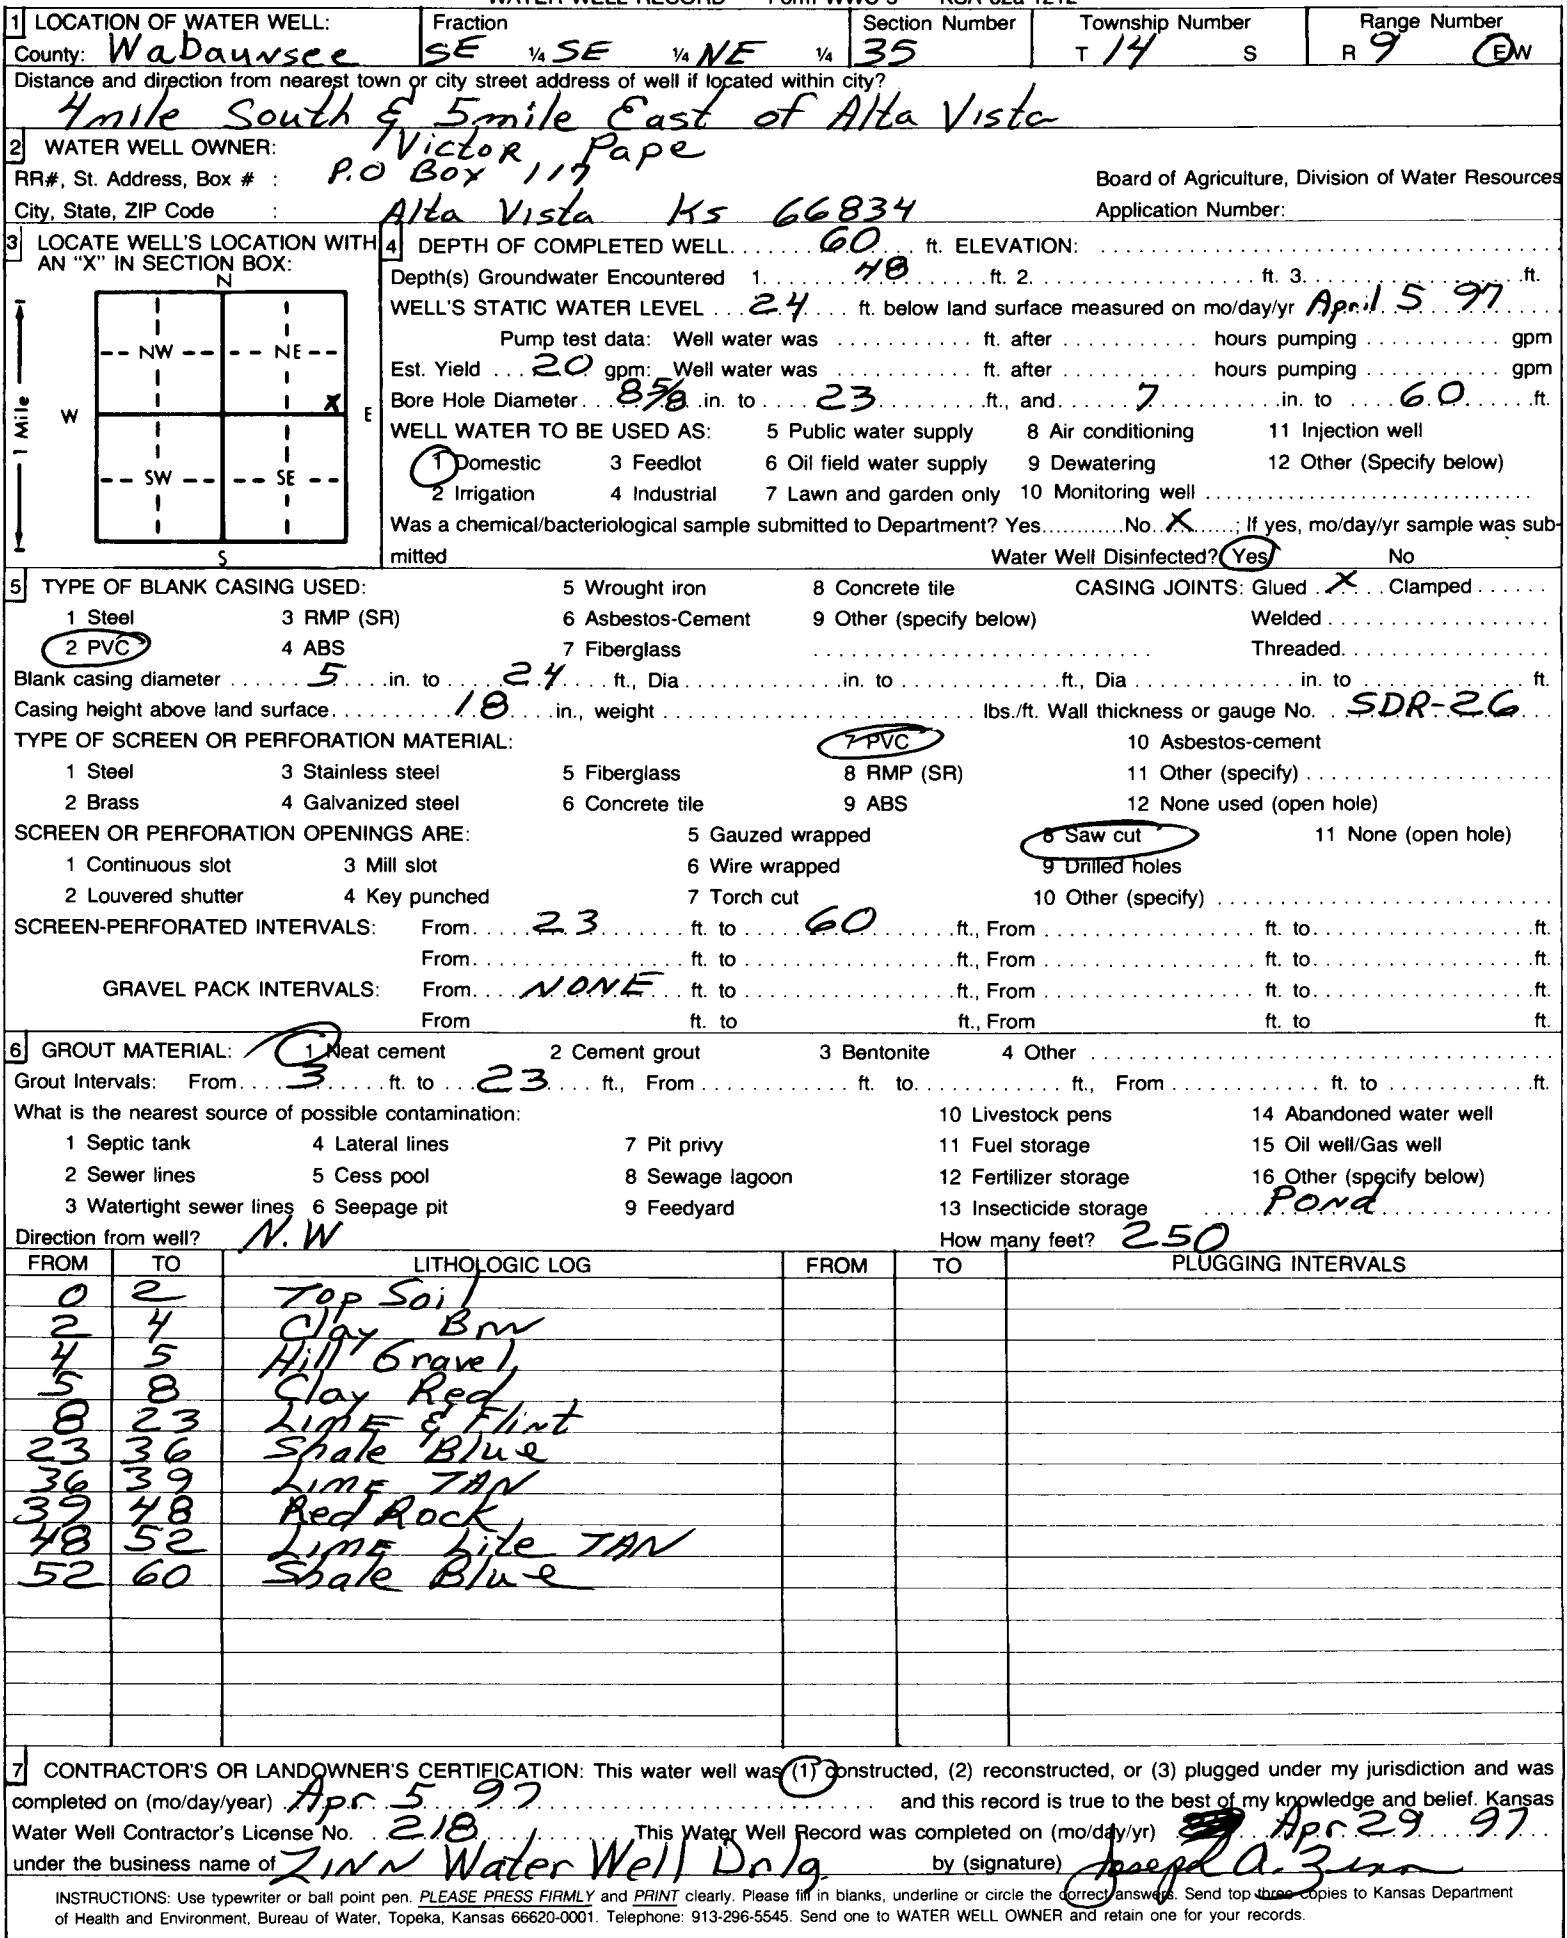 WATER WELL RECORD Form WWC-5 KSA 82a-1212
1 LOCATION OF WATER WELL: Fraction Section Number Township Number Range Number
County: Wabaunsee SE ¼ SE ¼ NE ¼ 35 T 14 S R 9 E/W
Distance and direction from nearest town or city street address of well if located within city?
4mile South & 5mile East of Alta Vista
2 WATER WELL OWNER: Victor Pape
RR#, St. Address, Box # : P.O Box 117 Board of Agriculture, Division of Water Resources
City, State, ZIP Code : Alta Vista Ks 66834 Application Number:
3 LOCATE WELL'S LOCATION WITH AN "X" IN SECTION BOX:
N
NW NE
W X E
SW SE
S
1 Mile
4 DEPTH OF COMPLETED WELL 60 ft. ELEVATION:
Depth(s) Groundwater Encountered 1. 48 ft. 2. ft. 3. ft.
WELL'S STATIC WATER LEVEL 24 ft. below land surface measured on mo/day/yr April 5 97
Pump test data: Well water was ft. after hours pumping gpm
Est. Yield 20 gpm: Well water was ft. after hours pumping gpm
Bore Hole Diameter 8 5/8 in. to 23 ft., and 7 in. to 60 ft.
WELL WATER TO BE USED AS: 5 Public water supply 8 Air conditioning 11 Injection well
1 Domestic 3 Feedlot 6 Oil field water supply 9 Dewatering 12 Other (Specify below)
2 Irrigation 4 Industrial 7 Lawn and garden only 10 Monitoring well
Was a chemical/bacteriological sample submitted to Department? Yes No X ; If yes, mo/day/yr sample was sub-
mitted Water Well Disinfected? Yes No
5 TYPE OF BLANK CASING USED: 5 Wrought iron 8 Concrete tile CASING JOINTS: Glued X Clamped
1 Steel 3 RMP (SR) 6 Asbestos-Cement 9 Other (specify below) Welded
2 PVC 4 ABS 7 Fiberglass Threaded
Blank casing diameter 5 in. to 24 ft., Dia in. to ft., Dia in. to ft.
Casing height above land surface 18 in., weight lbs./ft. Wall thickness or gauge No. SDR-26
TYPE OF SCREEN OR PERFORATION MATERIAL: 7 PVC 10 Asbestos-cement
1 Steel 3 Stainless steel 5 Fiberglass 8 RMP (SR) 11 Other (specify)
2 Brass 4 Galvanized steel 6 Concrete tile 9 ABS 12 None used (open hole)
SCREEN OR PERFORATION OPENINGS ARE: 5 Gauzed wrapped 8 Saw cut 11 None (open hole)
1 Continuous slot 3 Mill slot 6 Wire wrapped 9 Drilled holes
2 Louvered shutter 4 Key punched 7 Torch cut 10 Other (specify)
SCREEN-PERFORATED INTERVALS: From 23 ft. to 60 ft., From ft. to ft.
From ft. to ft., From ft. to ft.
GRAVEL PACK INTERVALS: From NONE ft. to ft., From ft. to ft.
From ft. to ft., From ft. to ft.
6 GROUT MATERIAL: 1 Neat cement 2 Cement grout 3 Bentonite 4 Other
Grout Intervals: From 3 ft. to 23 ft., From ft. to ft., From ft. to ft.
What is the nearest source of possible contamination: 10 Livestock pens 14 Abandoned water well
1 Septic tank 4 Lateral lines 7 Pit privy 11 Fuel storage 15 Oil well/Gas well
2 Sewer lines 5 Cess pool 8 Sewage lagoon 12 Fertilizer storage 16 Other (specify below)
3 Watertight sewer lines 6 Seepage pit 9 Feedyard 13 Insecticide storage Pond
Direction from well? N.W How many feet? 250
FROM TO LITHOLOGIC LOG FROM TO PLUGGING INTERVALS
0 2 Top Soil
2 4 Clay Brn
4 5 Hill Gravel
5 8 Clay Red
8 23 Lime & Flint
23 36 Shale Blue
36 39 Lime TAN
39 48 Red Rock
48 52 Lime Lite TAN
52 60 Shale Blue
7 CONTRACTOR'S OR LANDOWNER'S CERTIFICATION: This water well was (1) constructed, (2) reconstructed, or (3) plugged under my jurisdiction and was
completed on (mo/day/year) Apr 5 97 and this record is true to the best of my knowledge and belief. Kansas
Water Well Contractor's License No. 218 This Water Well Record was completed on (mo/day/yr) Apr 29 97
under the business name of ZINN Water Well Drlg. by (signature) Joseph A. Zinn
INSTRUCTIONS: Use typewriter or ball point pen. PLEASE PRESS FIRMLY and PRINT clearly. Please fill in blanks, underline or circle the correct answers. Send top three copies to Kansas Department
of Health and Environment, Bureau of Water, Topeka, Kansas 66620-0001. Telephone: 913-296-5545. Send one to WATER WELL OWNER and retain one for your records.